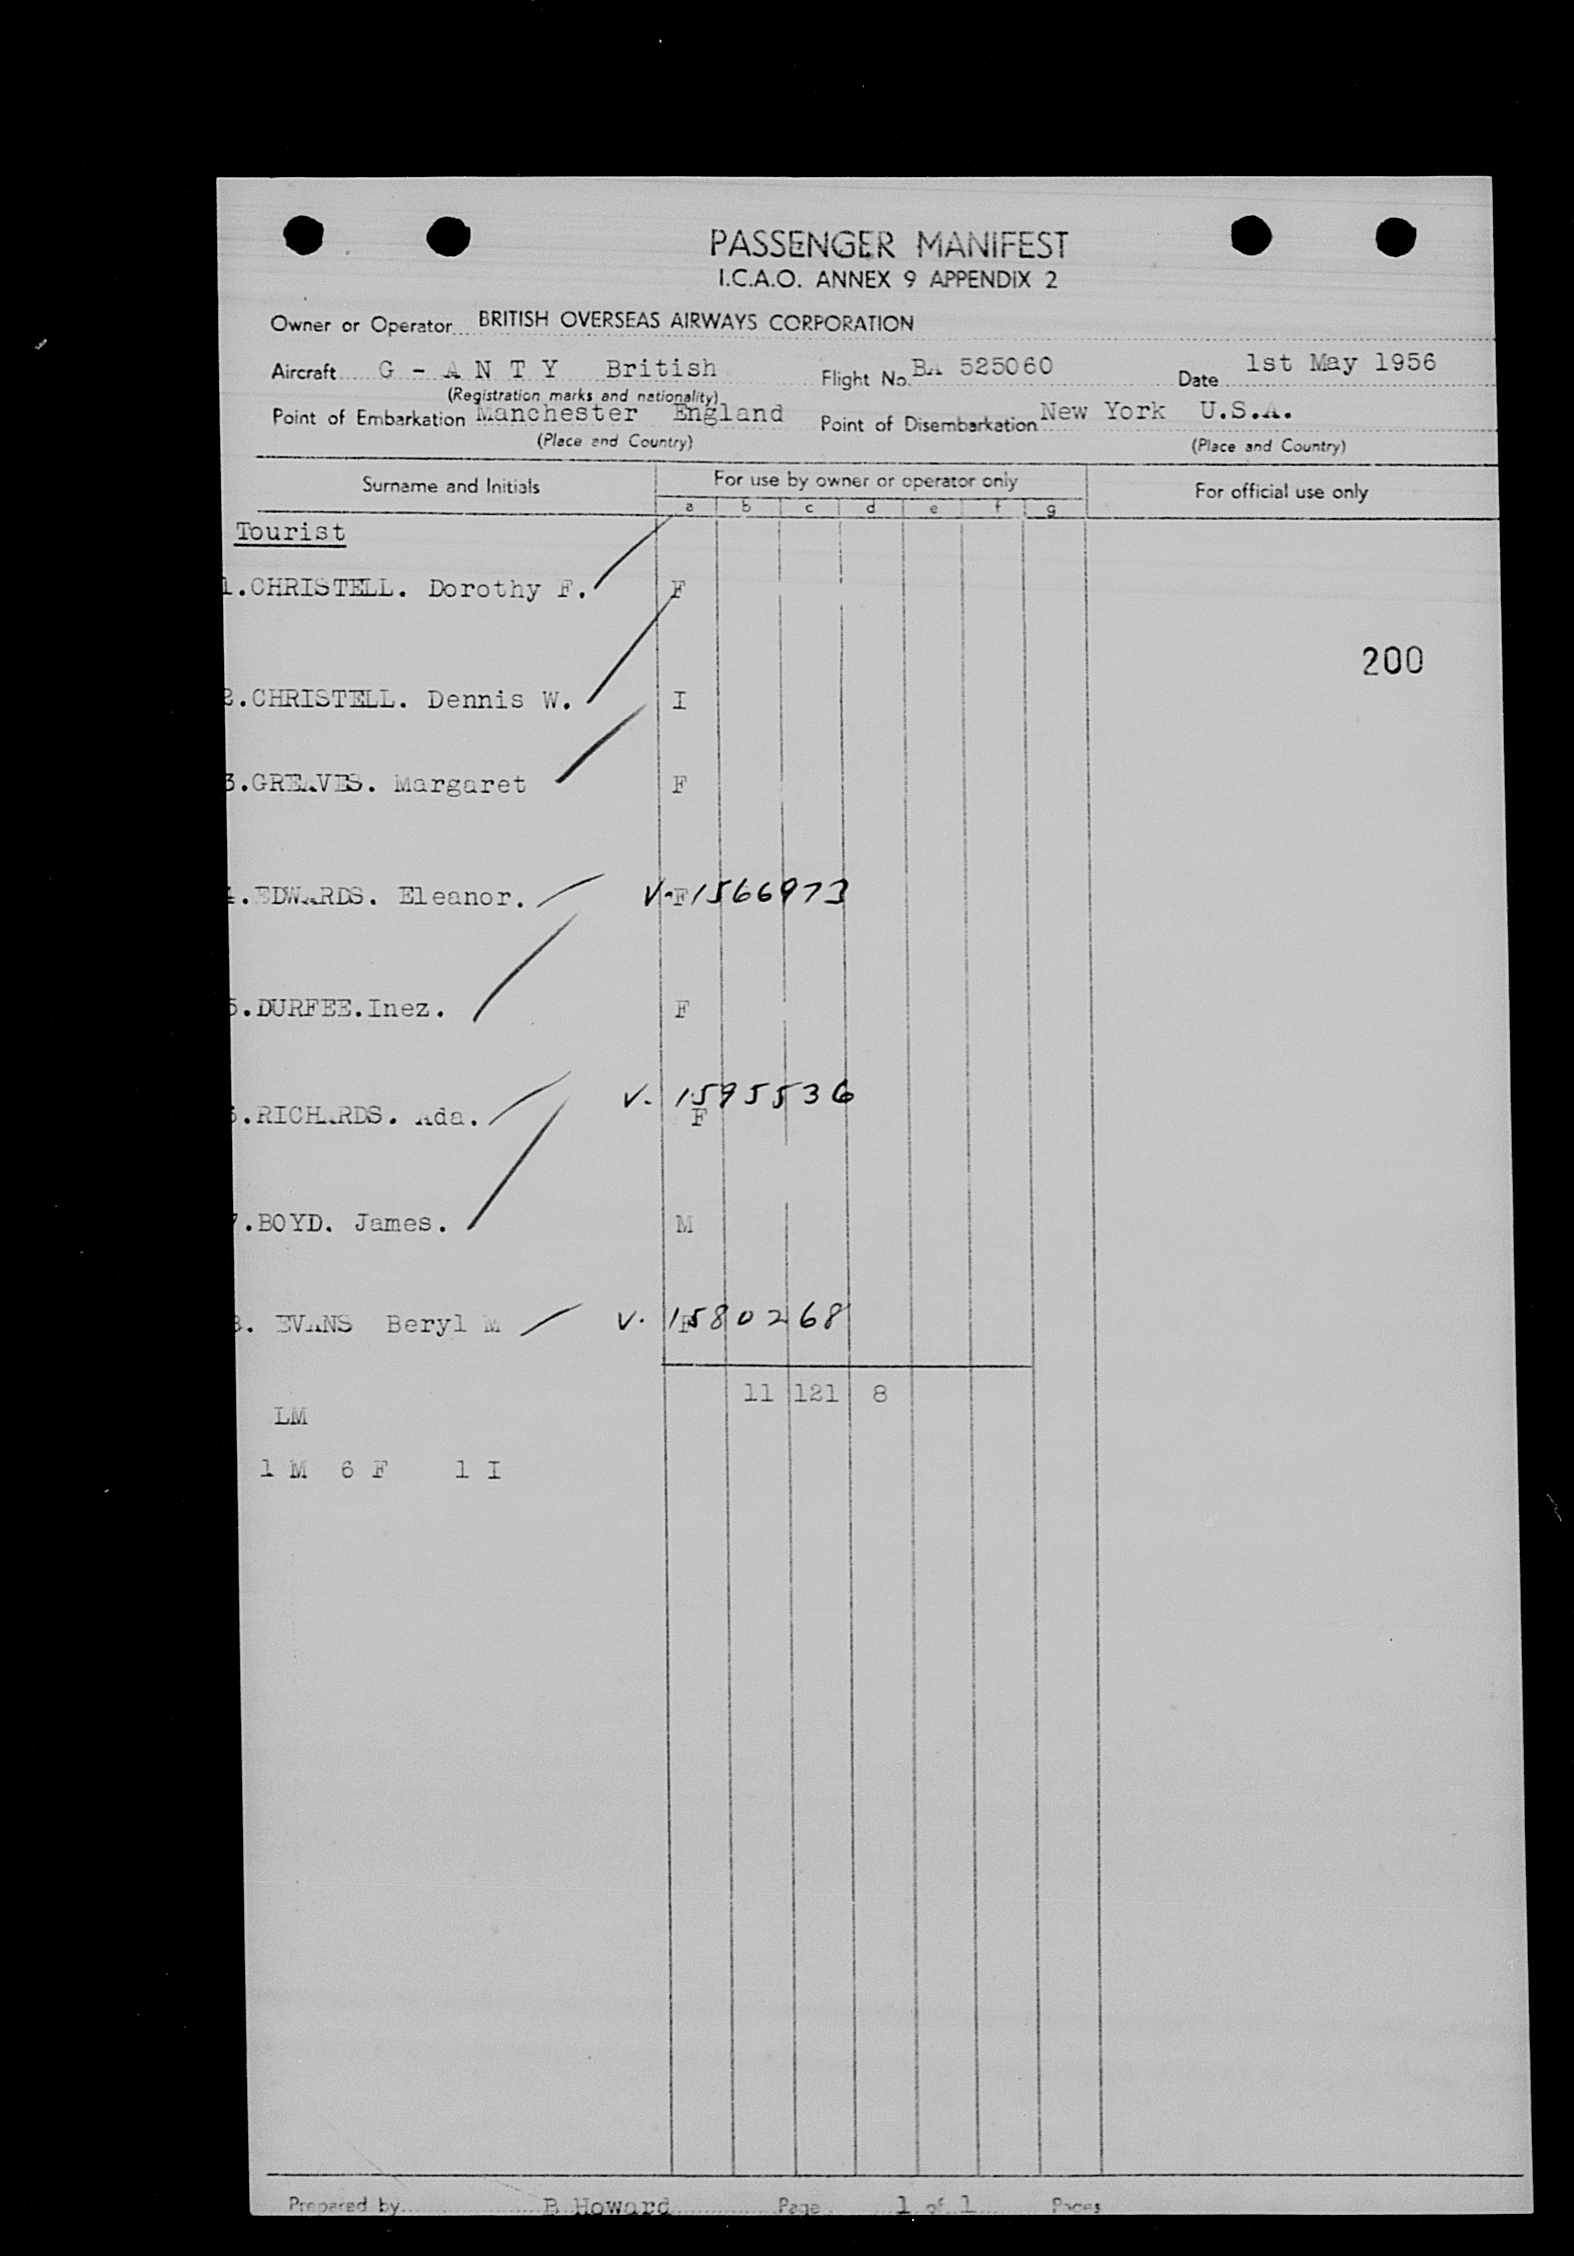 PASSENGER MANIFEST
I.C.A.O. ANNEX 9 APPENDIX 2
Owner or Operator BRITISH OVERSEAS AIRWAYS CORPORATION
Aircraft G - A N T Y British Flight No. BA 525060 Date 1st May 1956
(Registration marks and nationality)
Point of Embarkation Manchester England Point of Disembarkation New York U.S.A.
(Place and Country) (Place and Country)
Surname and Initials For use by owner or operator only For official use only
a b c d e f g
Tourist
1.CHRISTELL. Dorothy F. F
200
2.CHRISTELL. Dennis W. I
3.GREAVES. Margaret F
4.EDWARDS. Eleanor. F V-1566973
5.DURFEE.Inez. F
V. 1595536
6.RICHARDS. Ada. F
7.BOYD. James. M
8. EVANS Beryl M F V. 1580268
11 121 8
LM
1 M 6 F 1 I
Prepared by B Howard Page 1 of 1 Pages